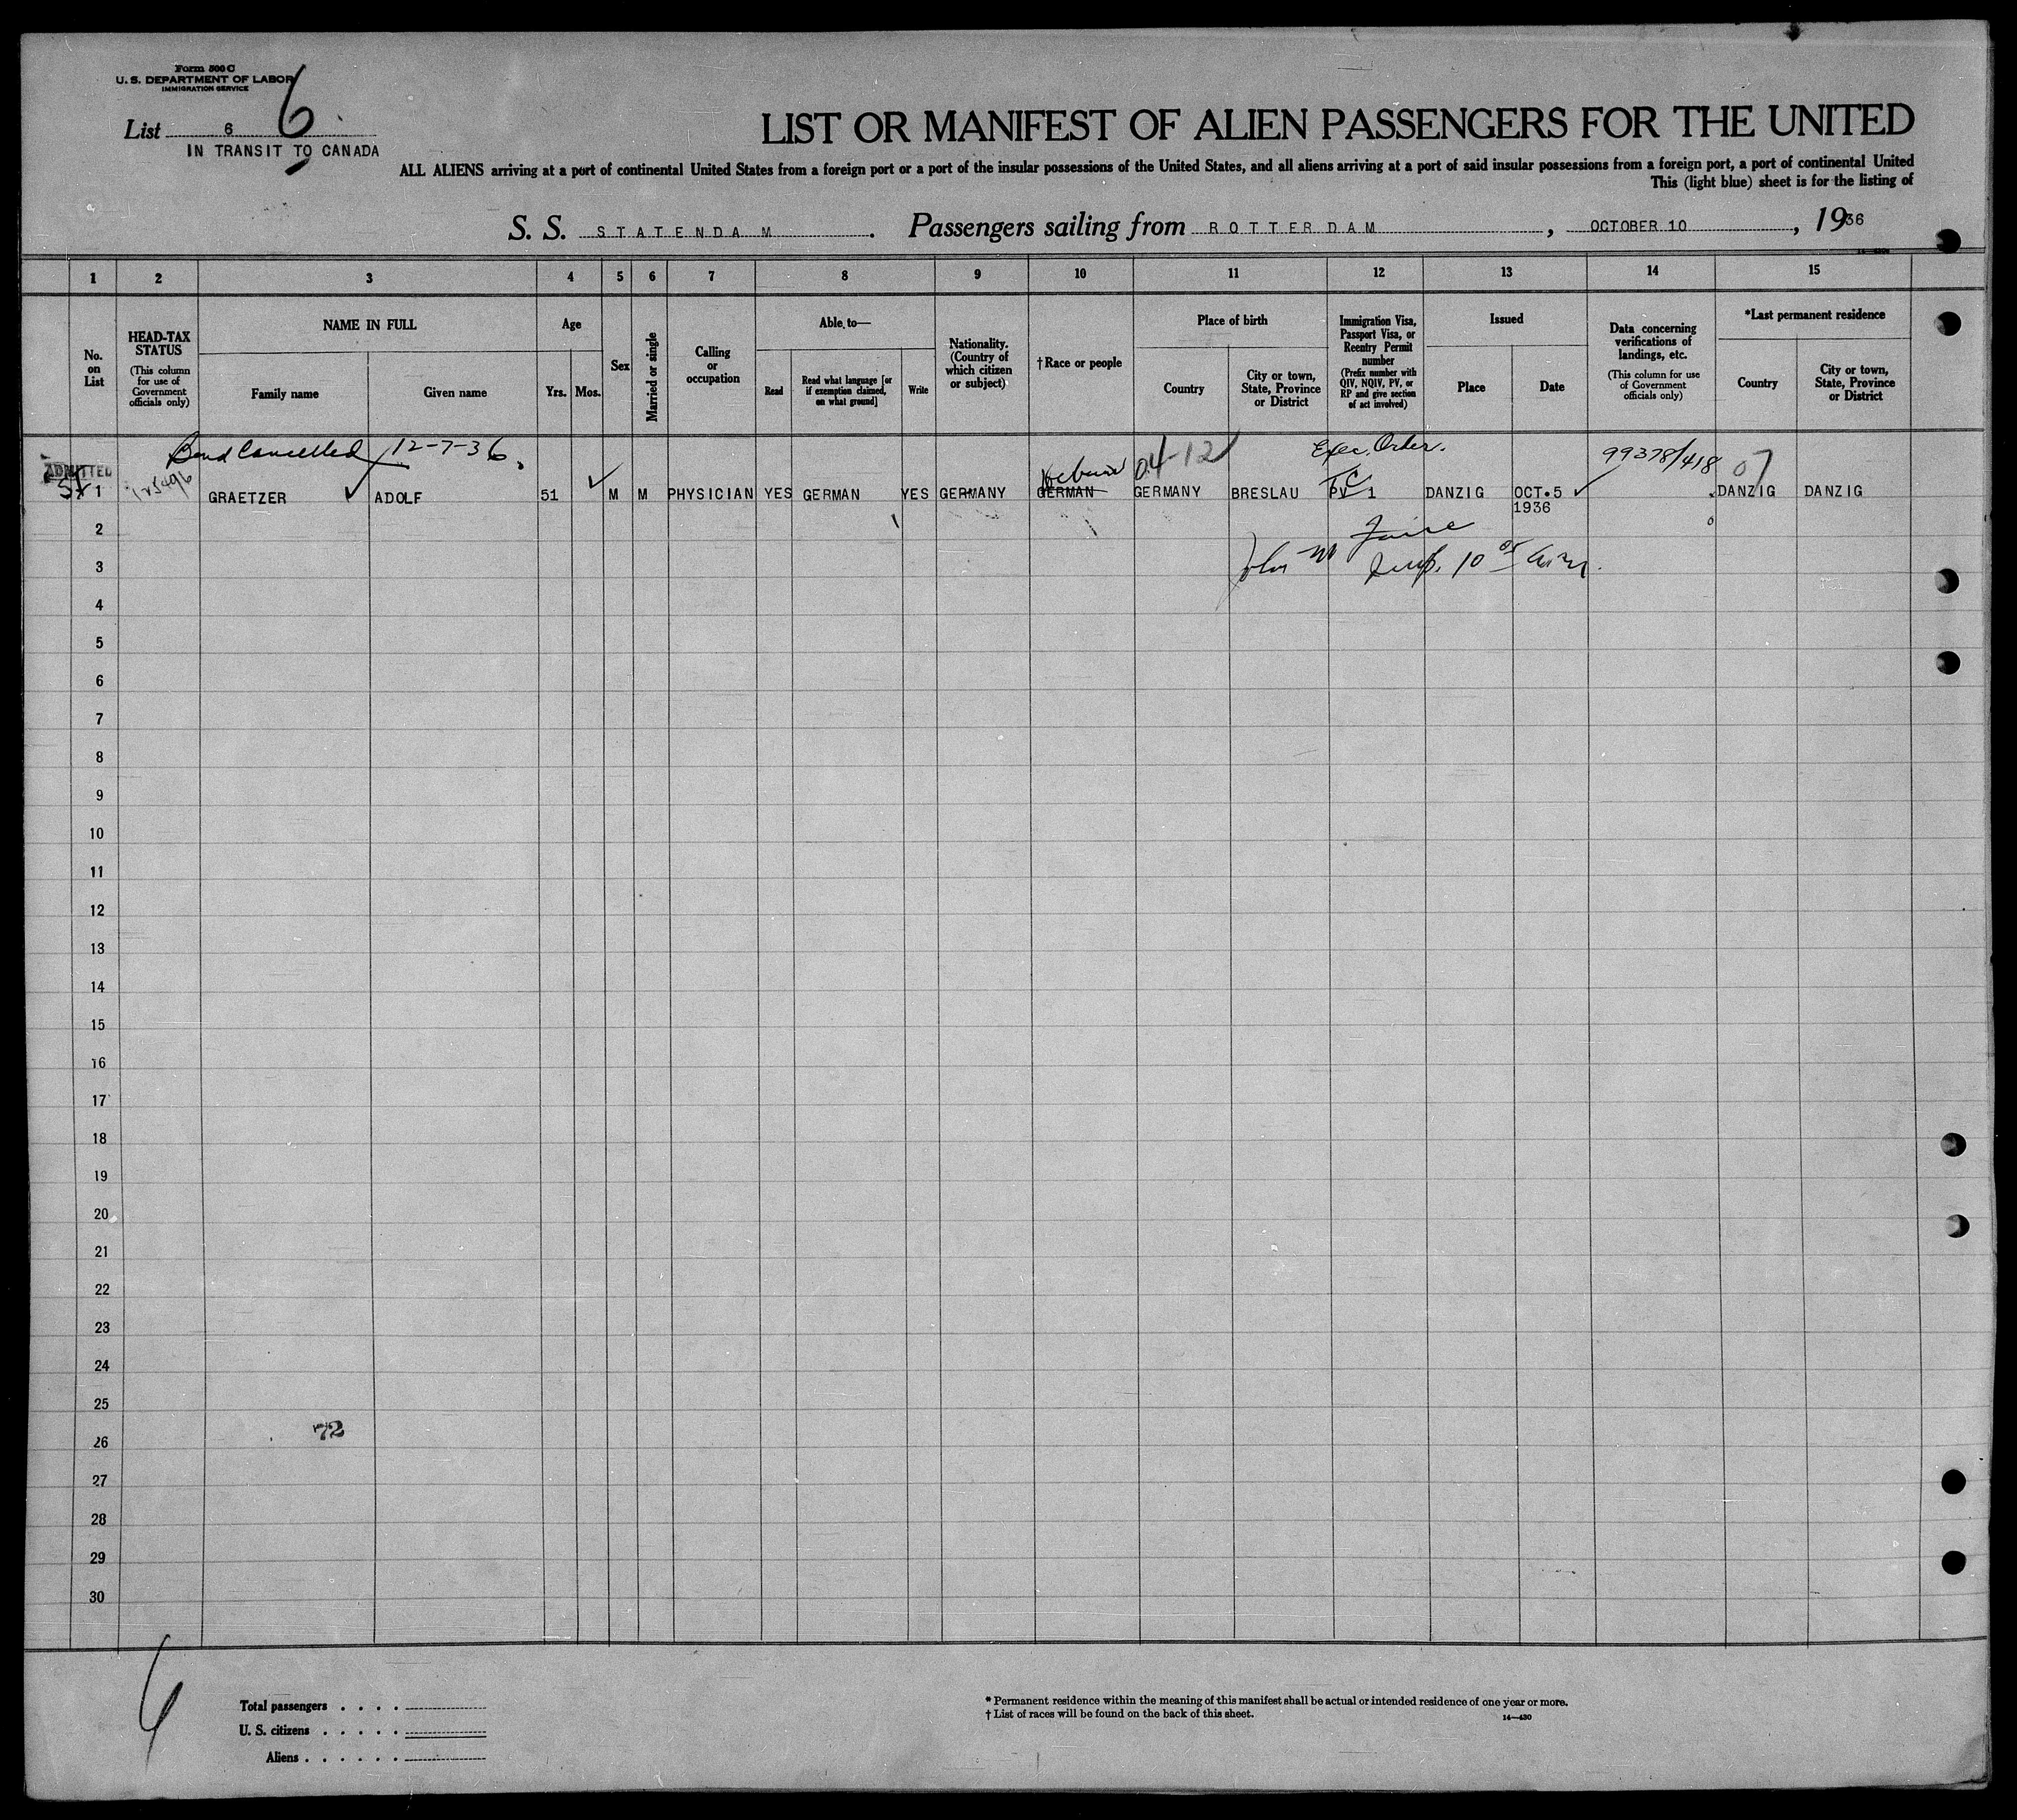 Form 500 C
U. S. DEPARTMENT OF LABOR
IMMIGRATION SERVICE
6
List 6
IN TRANSIT TO CANADA
LIST OR MANIFEST OF ALIEN PASSENGERS FOR THE UNITED
ALL ALIENS arriving at a port of continental United States from a foreign port or a port of the insular possessions of the United States, and all aliens arriving at a port of said insular possessions from a foreign port, a port of continental United
This (light blue) sheet is for the listing of
S. S. STATENDAM. Passengers sailing from ROTTERDAM, OCTOBER 10, 1936
1 2 3 4 5 6 7 8 9 10 11 12 13 14 15
No. on List
HEAD-TAX STATUS
(This column for use of Government officials only)
NAME IN FULL
Family name
Given name
Age
Yrs.
Mos.
Sex
Married or single
Calling or occupation
Able to—
Read
Read what language [or if exemption claimed, on what ground]
Write
Nationality. (Country of which citizen or subject)
†Race or people
Place of birth
Country
City or town, State, Province or District
Immigration Visa, Passport Visa, or Reentry Permit number
(Prefix number with QIV, NQIV, PV, or RP and give section of act involved)
Issued
Place
Date
Data concerning verifications of landings, etc.
(This column for use of Government officials only)
*Last permanent residence
Country
City or town, State, Province or District
Bond Cancelled 12-7-36.
Hebrew
04-12
Exec. Order.
99378/418
07
ADMITTED
TC
1 GRAETZER ADOLF 51 M M PHYSICIAN YES GERMAN YES GERMANY GERMAN GERMANY BRESLAU PV 1 DANZIG OCT.5 1936 DANZIG DANZIG
2
3
John M
Insp. 10
4
5
6
7
8
9
10
11
12
13
14
15
16
17
18
19
20
21
22
23
24
25
72
26
27
28
29
30
Total passengers . . . .
U. S. citizens . . . . .
Aliens . . . . . .
* Permanent residence within the meaning of this manifest shall be actual or intended residence of one year or more.
† List of races will be found on the back of this sheet.
14—430